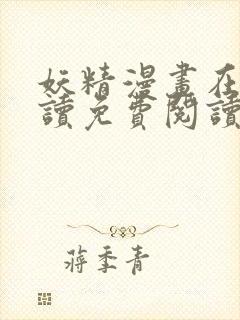 妖精漫畫在
讀免費閱讀
蔣季青